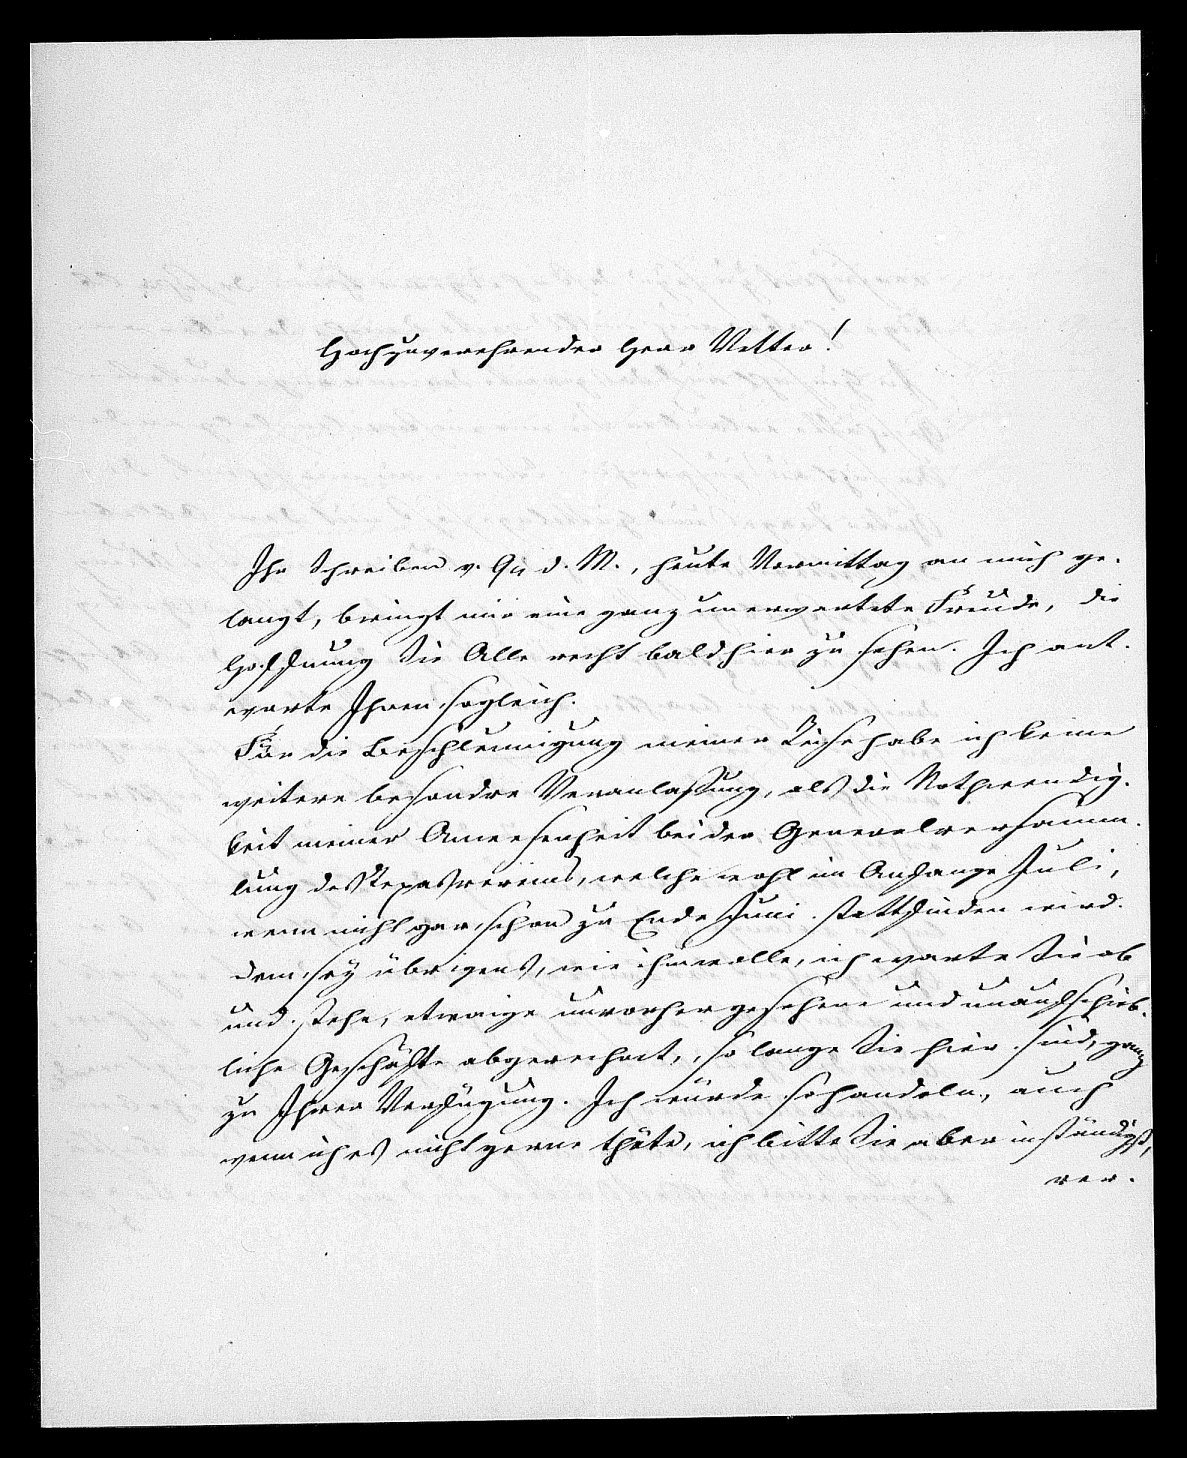 Hochzuverehrender Herr Vetter!
Ihr Schreiben v. 9n d. M., heute Vormittag an mich ge-
langt, bringt mir eine ganz unerwartete Freude, die
Hoffnung Sie Alle recht bald hier zu sehen. Ich ant-
worte Ihnen sogleich.
Für die Beschleunigung meiner Reise habe ich keine
weitere besondre Veranlassung, als die Nothwendig-
keit meiner Anwesenheit bei der Generalversamm-
lung des Texasvereins, welche wohl im Anfange Juli,
wenn nicht gar schon zu Ende Juni stattfinden wird.
dem sey übrigens, wie ihm wolle, ich warte Sie ab
und stehe, etwaige unvorhergesehene und unaufschieb-
liche Geschäfte abgerechnet, so lange Sie hier sind, ganz
zu Ihrer Verfügung. Ich würde so handeln, auch
wenn ich es nicht gerne thäte, ich bitte Sie aber inständigst,
ver-